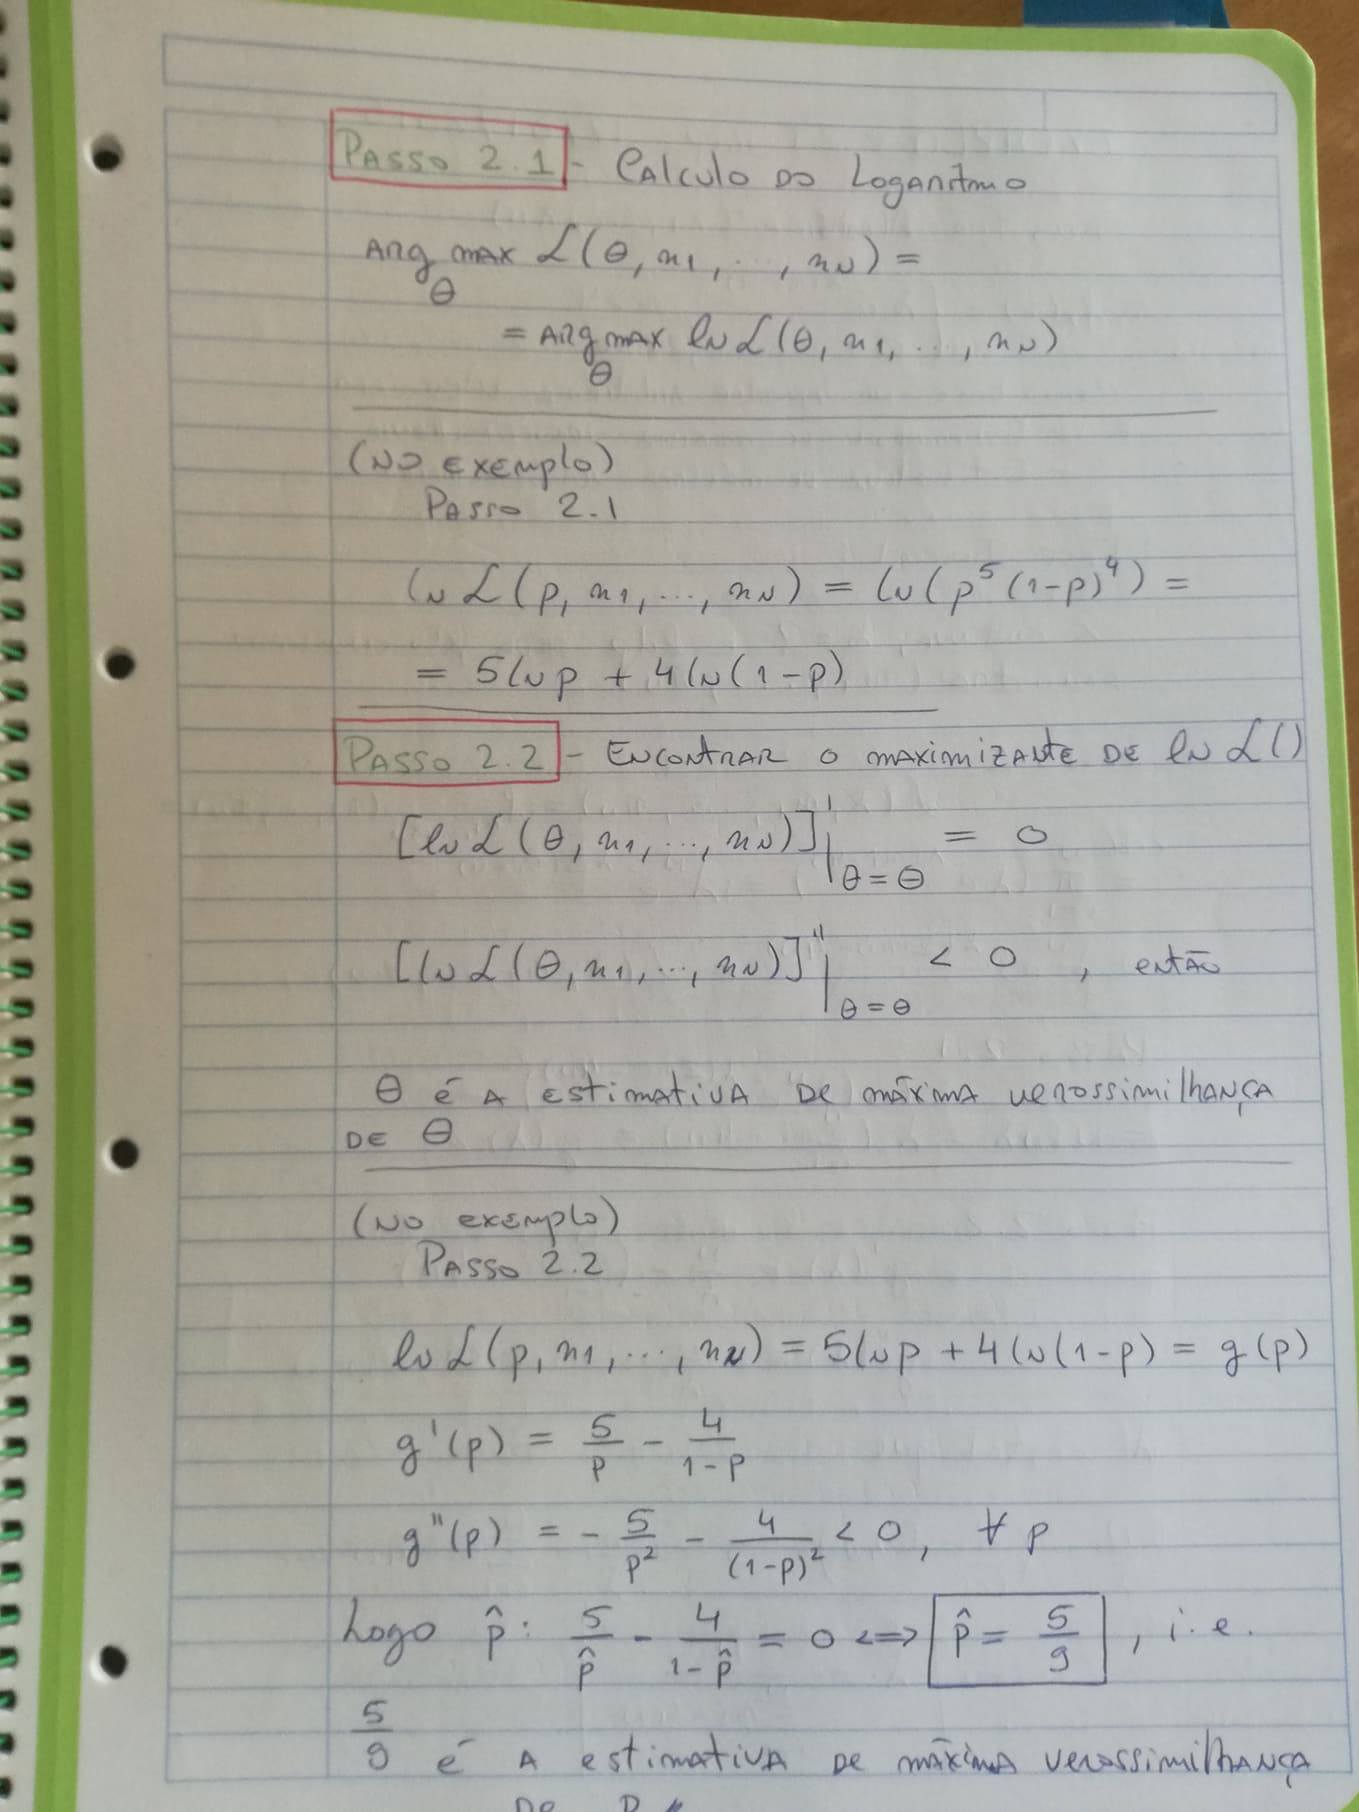 PASSO 2.1 - CALCULO DO LOGARITMO
ARG MAX L(θ, x1, ..., xN) =
θ
= ARG MAX ln L(θ, x1, ..., xN)
θ
(NO EXEMPLO)
PASSO 2.1
ln L(p, x1, ..., xN) = ln(p⁵(1-p)⁴) =
= 5 ln p + 4 ln(1-p)
PASSO 2.2 - ENCONTRAR O MAXIMIZANTE DE ln L()
[ln L(θ, x1, ..., xN)]'|θ=θ = 0
[ln L(θ, x1, ..., xN)]''|θ=θ < 0, ENTÃO
θ é A ESTIMATIVA DE MÁXIMA VEROSSIMILHANÇA
DE θ
(NO EXEMPLO)
PASSO 2.2
ln L(p, x1, ..., xN) = 5 ln p + 4 ln(1-p) = g(p)
g'(p) = 5/p - 4/(1-p)
g''(p) = - 5/p² - 4/(1-p)² < 0, ∀ p
Logo p̂: 5/p̂ - 4/(1-p̂) = 0 <=> p̂ = 5/9, i.e.
5/9 é A ESTIMATIVA DE MÁXIMA VEROSSIMILHANÇA
DE P